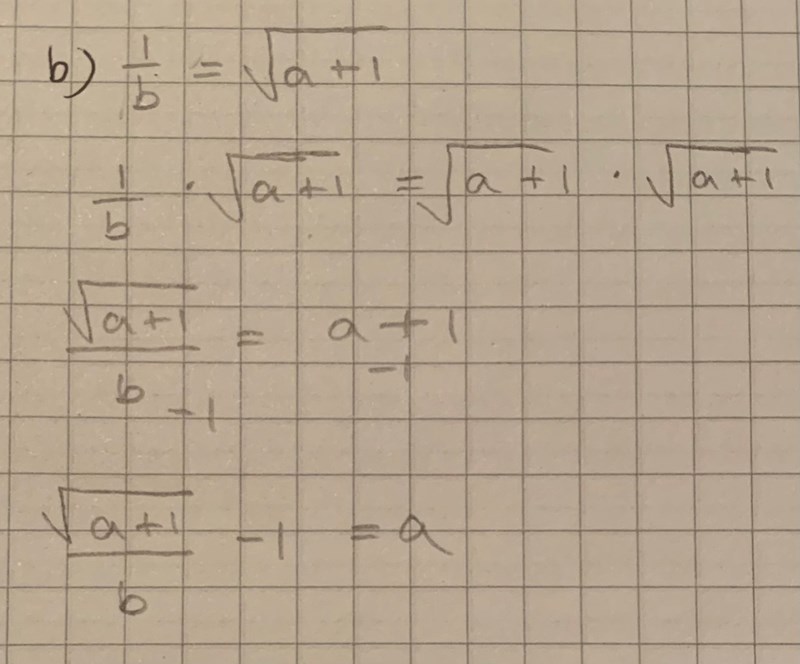 b) 1/b = √(a+1)
1/b · √(a+1) = √(a+1) · √(a+1)
√(a+1)/b = a+1
-1 -1
√(a+1)/b -1 = a